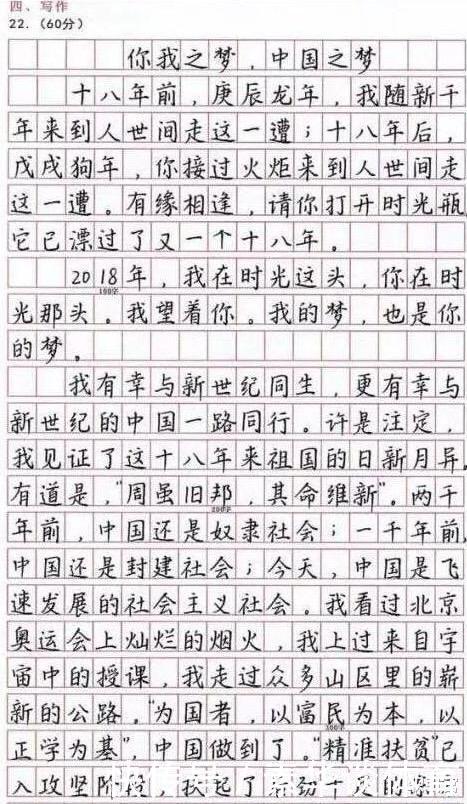 四、写作
22.（60分）
你我之梦，中国之梦
十八年前，庚辰龙年，我随新千
年来到人世间走这一遭；十八年后，
戊戌狗年，你接过火炬来到人世间走
这一遭。有缘相逢，请你打开时光瓶
它已漂过了又一个十八年。
2018年，我在时光这头，你在时
100字
光那头。我望着你。我的梦，也是你
的梦。
我有幸与新世纪同生，更有幸与
新世纪的中国一路同行。许是注定，
我见证了这十八年来祖国的日新月异。
有道是，“周虽旧邦，其命维新”。两千
200字
年前，中国还是奴隶社会；一千年前，
中国还是封建社会；今天，中国是飞
速发展的社会主义社会。我看过北京
奥运会上灿烂的烟火，我上过来自宇
宙中的授课，我走过众多山区里的崭
新的公路。“为国者，以富民为本，以
300字
正学为基”，中国做到了。“精准扶贫”已
入攻坚阶段，扶起了